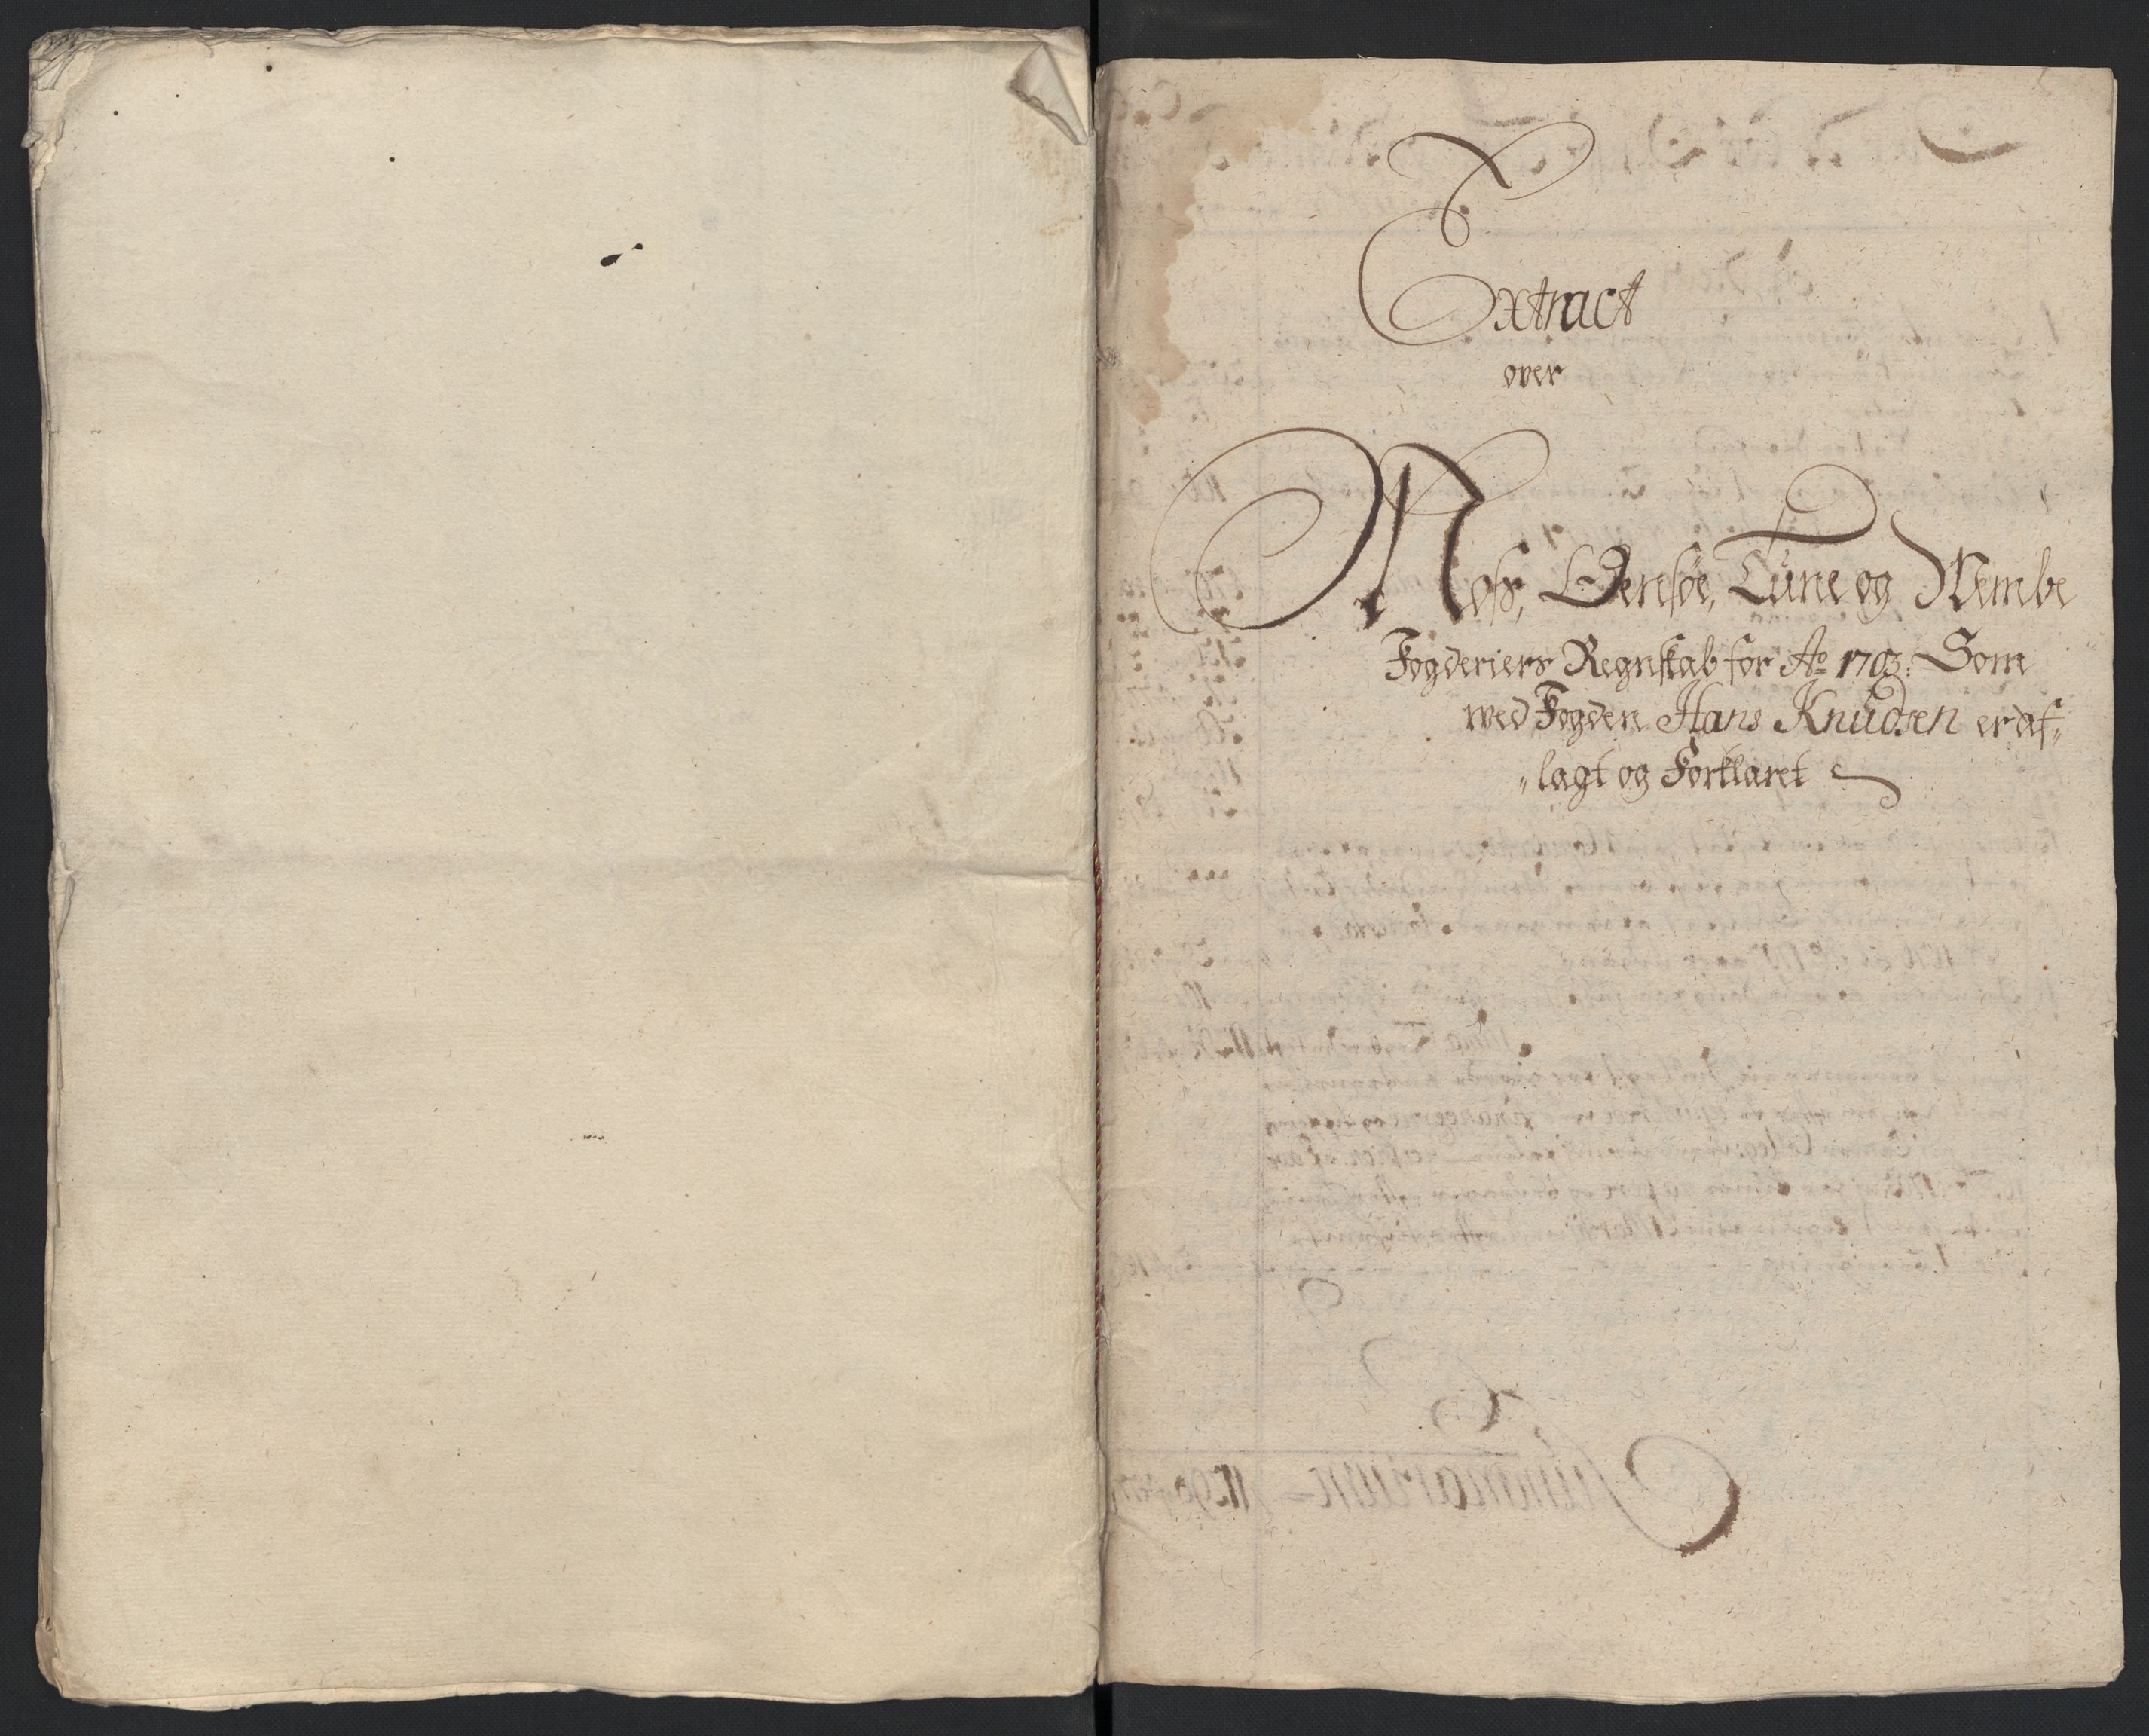 Extract
over
Moss, Onsøe, Tune og Wembe
Fogderiers Regnskab for Ao 1703: Som
wed Fogden Hans Knudsen er af„
„lagt og Forklaret